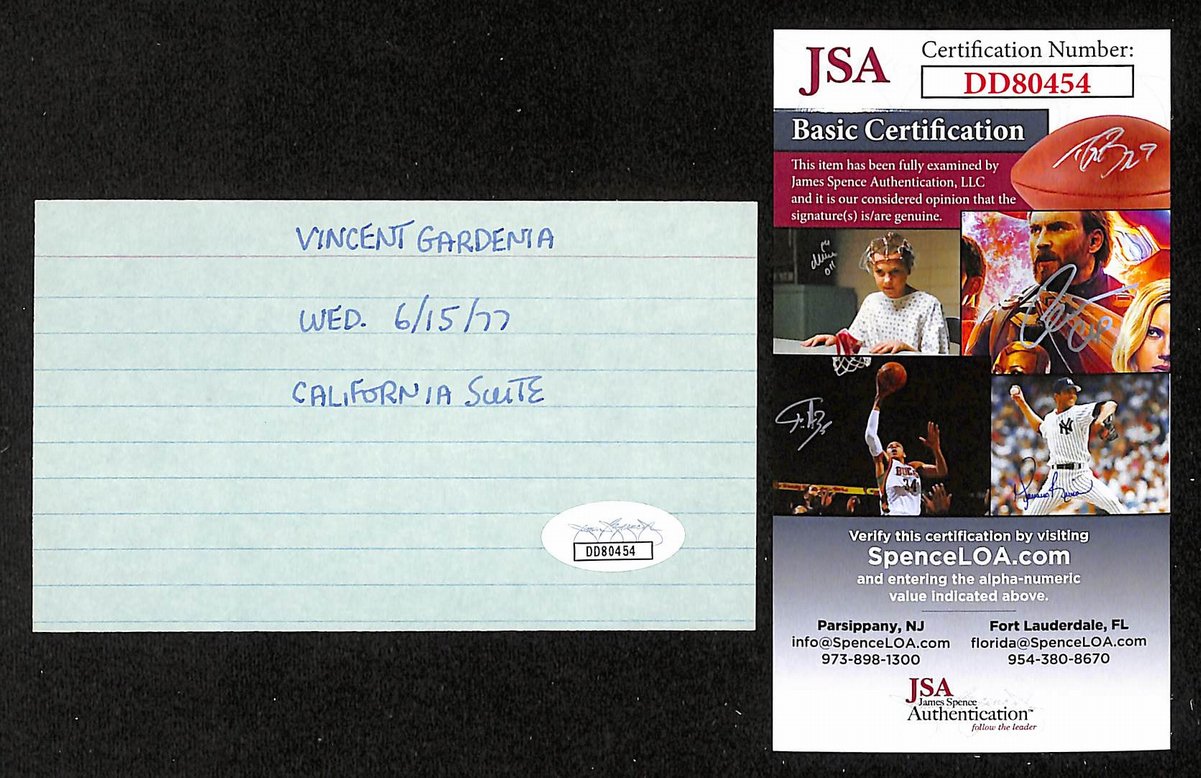 VINCENT GARDENIA
WED. 6/15/77
CALIFORNIA SUITE
DD80454
JSA
Certification Number:
DD80454
Basic Certification
This item has been fully examined by
James Spence Authentication, LLC
and it is our considered opinion that the
signature(s) is/are genuine.
BUCKS
34
NY
Verify this certification by visiting
SpenceLOA.com
and entering the alpha-numeric
value indicated above.
Parsippany, NJ
info@SpenceLOA.com
973-898-1300
Fort Lauderdale, FL
florida@SpenceLOA.com
954-380-8670
JSA
James Spence
Authentication™
follow the leader